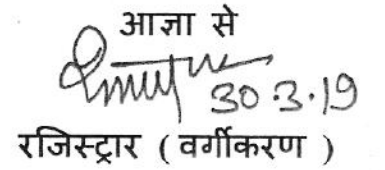 आज्ञा से
30.3.19
रजिस्ट्रार ( वर्गीकरण )